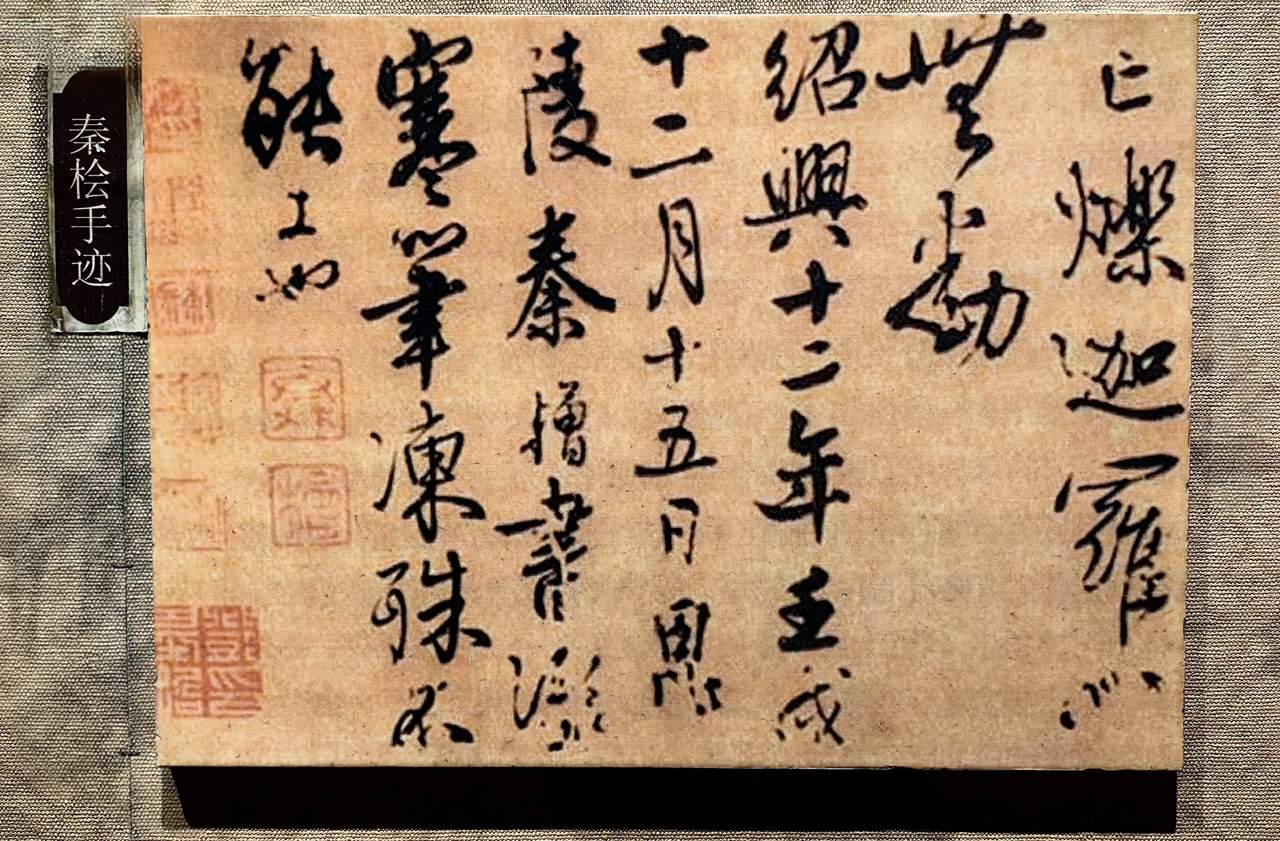 亡爍迦羅心
無動
紹興十二年壬戌
十二月十五日
陵秦檜書
寒筆凍殊不
能工也
秦桧手迹